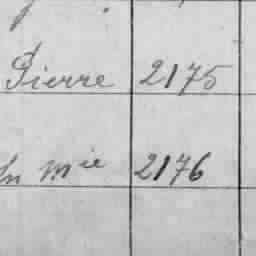 Pierre 2175
mie 2176